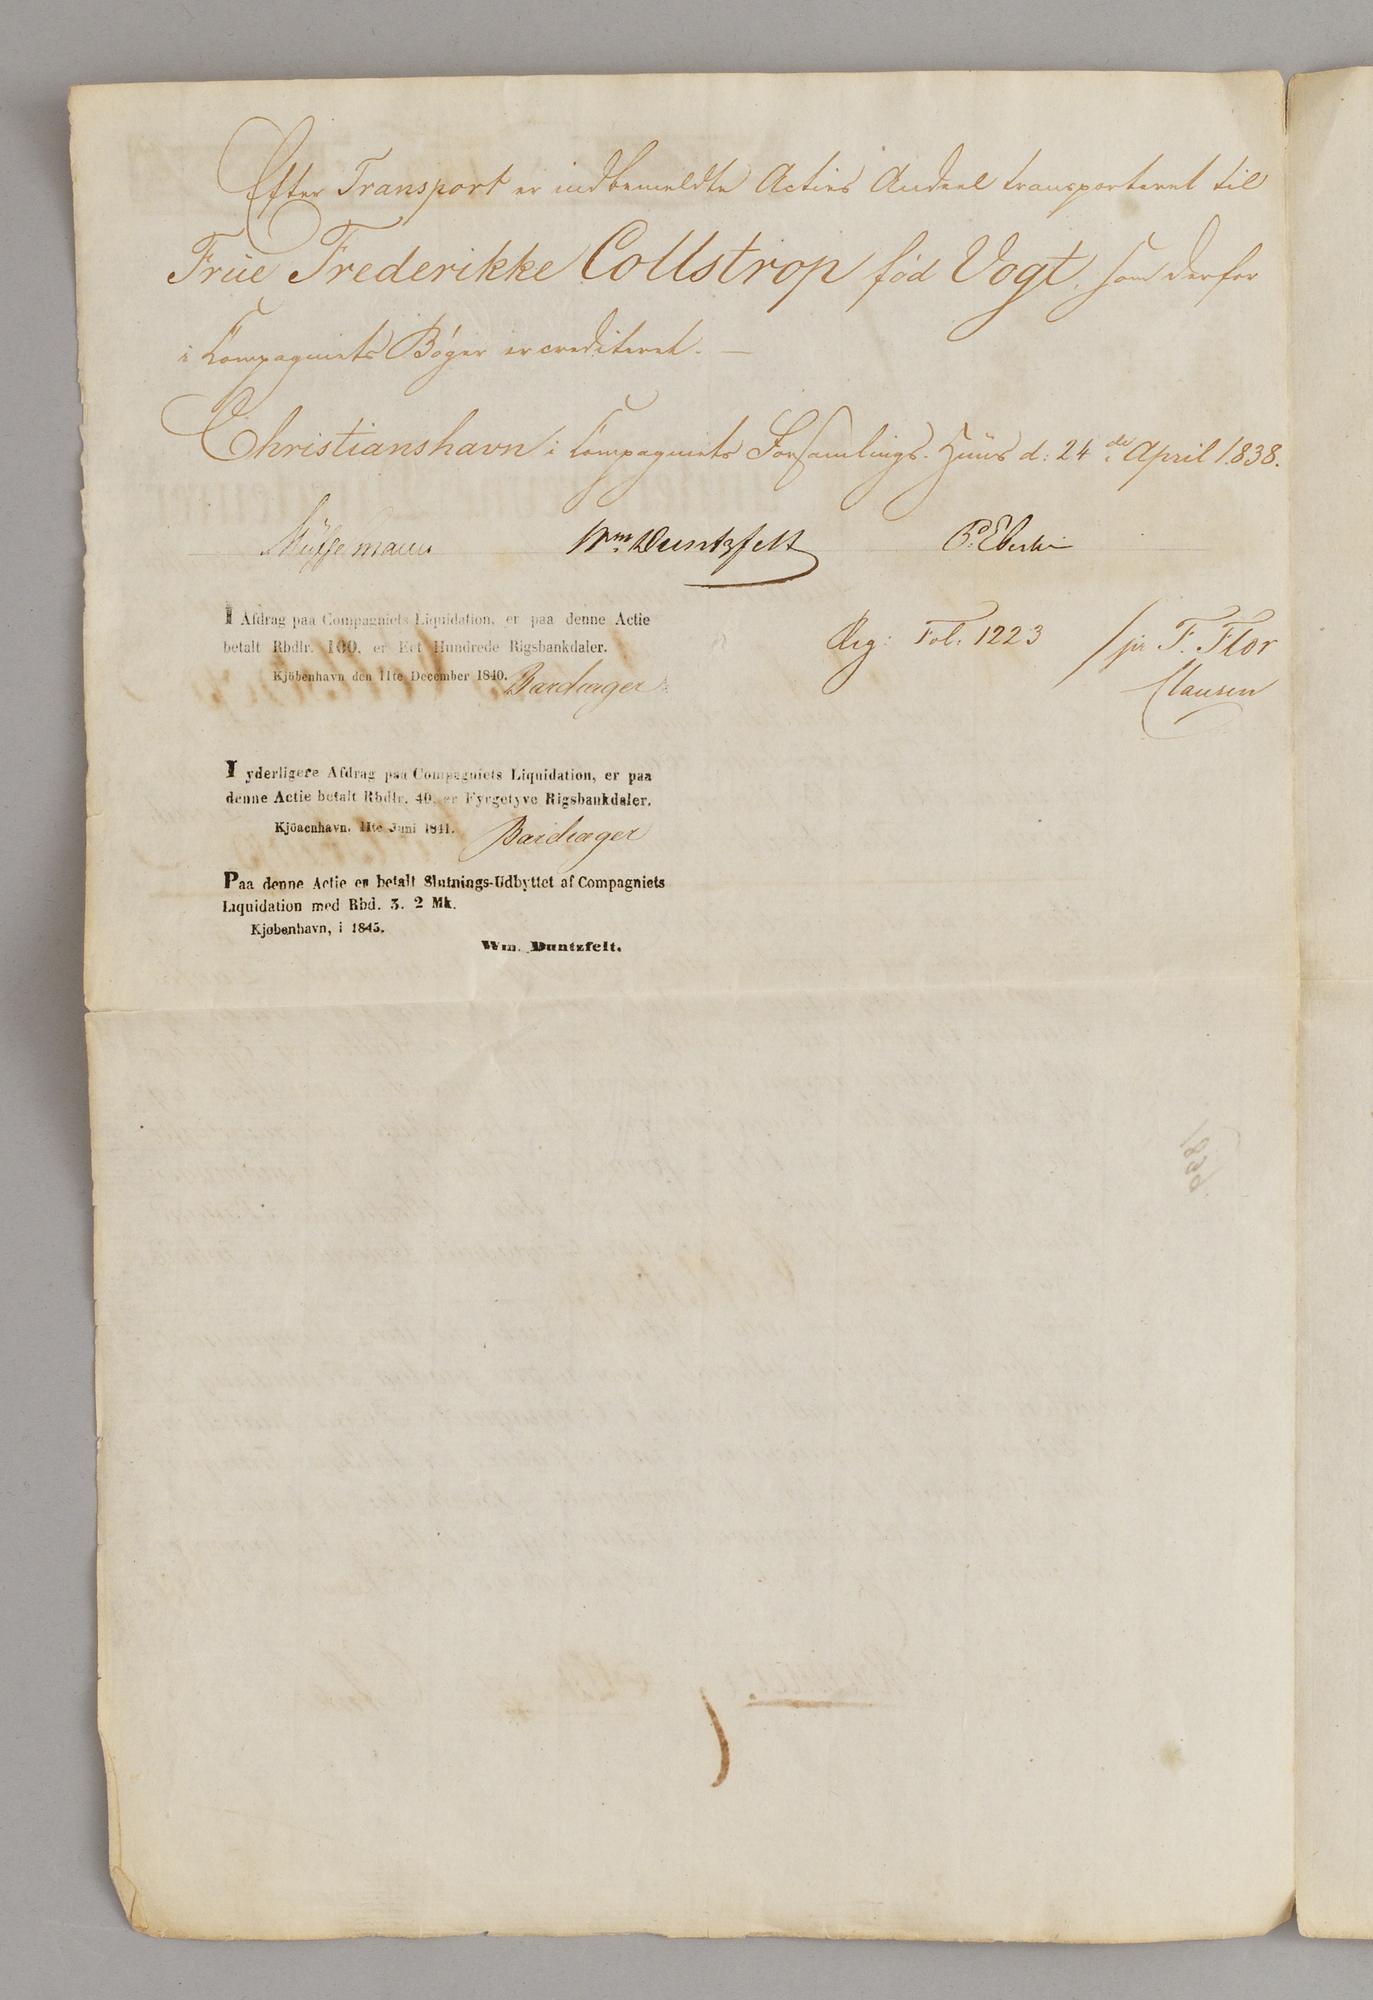 Efter Transport er indbemeldte Acties Andeel transporteret til
Frue Frederikke Collstrop fød Vogt, som derfor
i Compagniets Bøger er crediteret. —
Christianshavn i Compagniets Forsamlings-Huus d: 24de April 1838.
Wm Duntzfelt
Reg: Fol. 1223 / pr F. Flor
Clausen
I Afdrag paa Compagniets Liquidation, er paa denne Actie
betalt Rbdlr. 100, er Eet Hundrede Rigsbankdaler.
Kjöbenhavn den 11te December 1840. Bardæger
I yderligere Afdrag paa Compagniets Liquidation, er paa
denne Actie betalt Rbdlr. 40, er Fyrgetyve Rigsbankdaler.
Kjöbenhavn, 11te Juni 1841. Bardæger
Paa denne Actie er betalt Slutnings-Udbyttet af Compagniets
Liquidation med Rbd. 3. 2 Mk.
Kjøbenhavn, i 1845.
Wm. Duntzfelt.